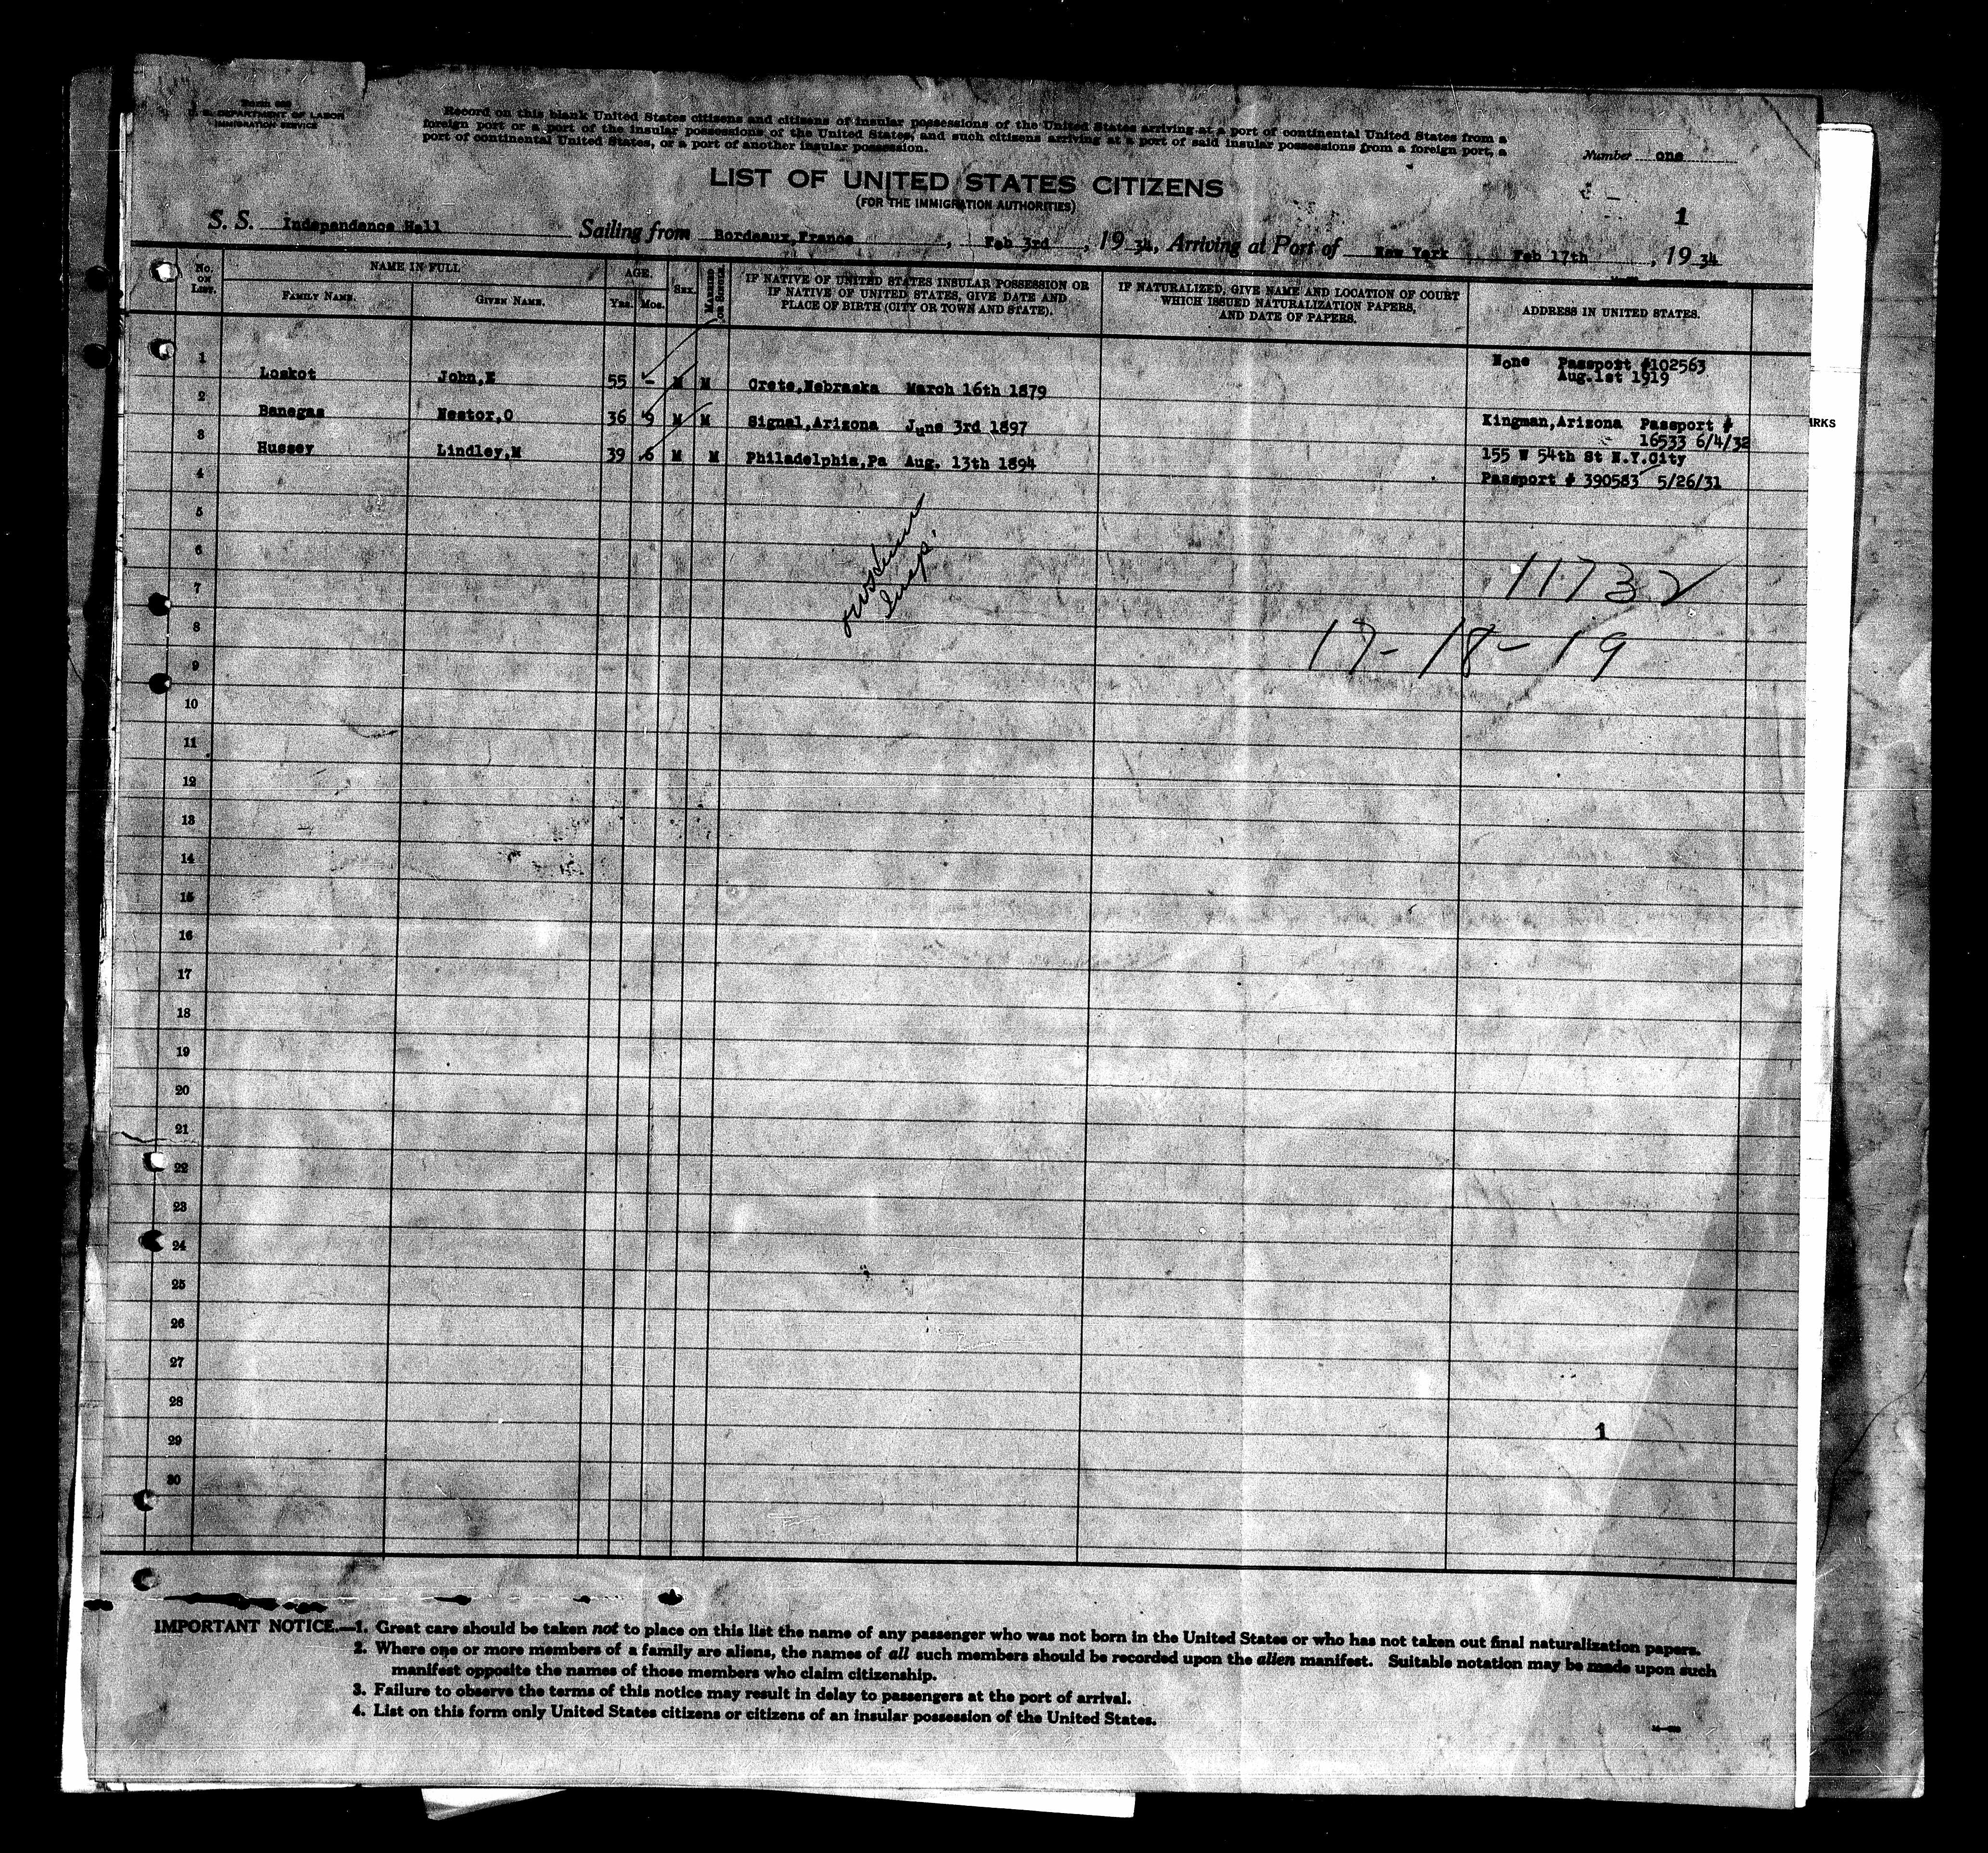 U. S. DEPARTMENT OF LABOR
IMMIGRATION SERVICE
Record on this blank United States citizens and citizens of insular possessions of the United States arriving at a port of continental United States from a
foreign port or a port of the insular possessions of the United States, and such citizens arriving at a port of said insular possessions from a foreign port, a
port of continental United States, or a port of another insular possession.
Number one
LIST OF UNITED STATES CITIZENS
(FOR THE IMMIGRATION AUTHORITIES)
1
S. S. Independence Hall Sailing from Bordeaux,France, Feb 3rd, 1934, Arriving at Port of New York Feb 17th, 1934
No. ON LIST.
NAME IN FULL
FAMILY NAME. GIVEN NAME.
AGE.
Yrs. Mos.
SEX.
MARRIED OR SINGLE.
IF NATIVE OF UNITED STATES INSULAR POSSESSION OR
IF NATIVE OF UNITED STATES, GIVE DATE AND
PLACE OF BIRTH (CITY OR TOWN AND STATE).
IF NATURALIZED, GIVE NAME AND LOCATION OF COURT
WHICH ISSUED NATURALIZATION PAPERS,
AND DATE OF PAPERS.
ADDRESS IN UNITED STATES.
1 Loskot John,E 55 - M M Crete,Nebraska March 16th 1879 None Passport #102563
Aug.1st 1919
2 Banegas Nestor,O 36 9 M M Signal,Arizona June 3rd 1897 Kingman,Arizona Passport #
16533 6/4/32
3 Hussey Lindley,M 39 6 M M Philadelphia,Pa Aug. 13th 1894 155 W 54th St N.Y.City
Passport # 390583 5/26/31
RKS
4
5
6
11732
7
Insp.
8
17-18-19
9
10
11
12
13
14
15
16
17
18
19
20
21
22
23
24
25
26
27
28
1
29
30
IMPORTANT NOTICE.—1. Great care should be taken not to place on this list the name of any passenger who was not born in the United States or who has not taken out final naturalization papers.
2. Where one or more members of a family are aliens, the names of all such members should be recorded upon the alien manifest. Suitable notation may be made upon such
manifest opposite the names of those members who claim citizenship.
3. Failure to observe the terms of this notice may result in delay to passengers at the port of arrival.
4. List on this form only United States citizens or citizens of an insular possession of the United States.